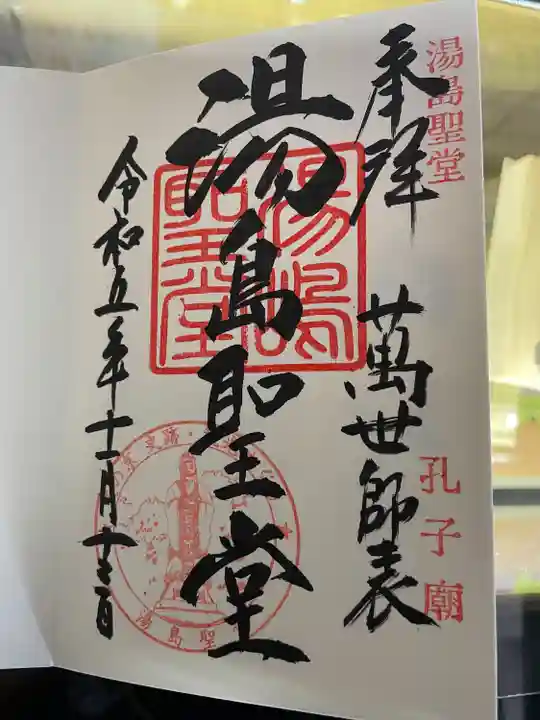 湯島聖堂
奉拝
萬世師表
孔子廟
湯島聖堂
湯島聖堂
令和五年十一月十三日
湯島聖